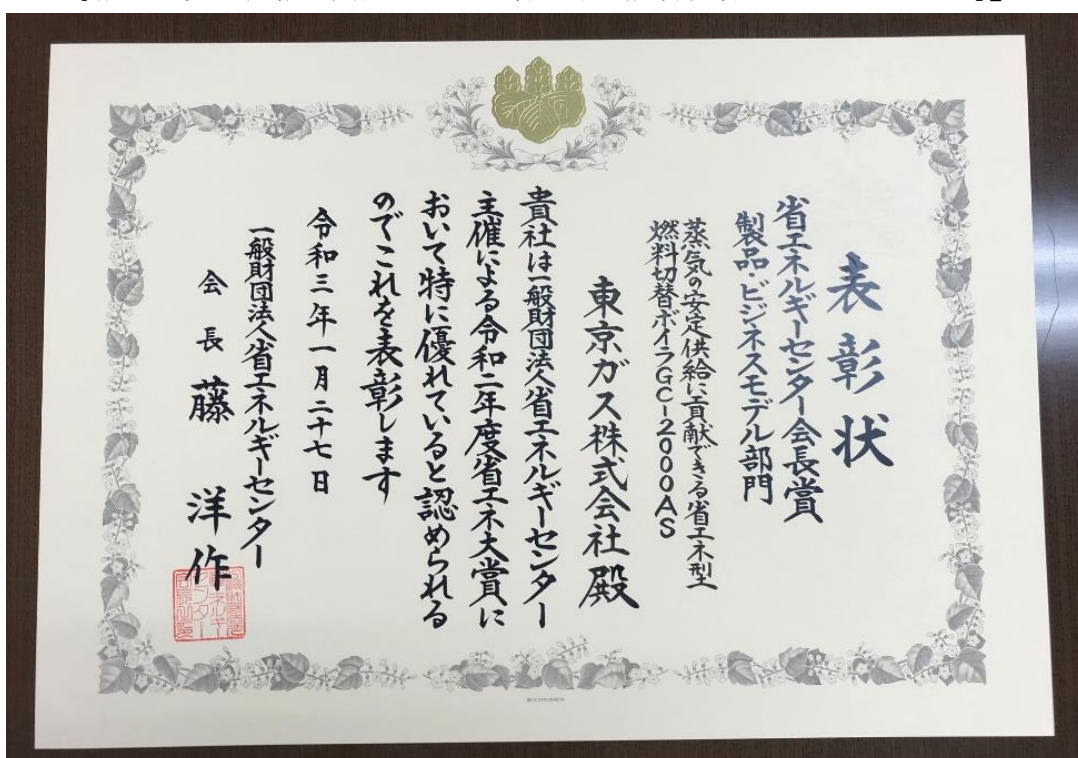 表彰状
省エネルギーセンター会長賞
製品・ビジネスモデル部門
蒸気の安定供給に貢献できる省エネ型
燃料切替ボイラGC-2000AS
東京ガス株式会社殿
貴社は一般財団法人省エネルギーセンター
主催による令和二年度省エネ大賞に
おいて特に優れていると認められる
のでこれを表彰します
令和三年一月二十七日
一般財団法人省エネルギーセンター
会長 藤 洋作